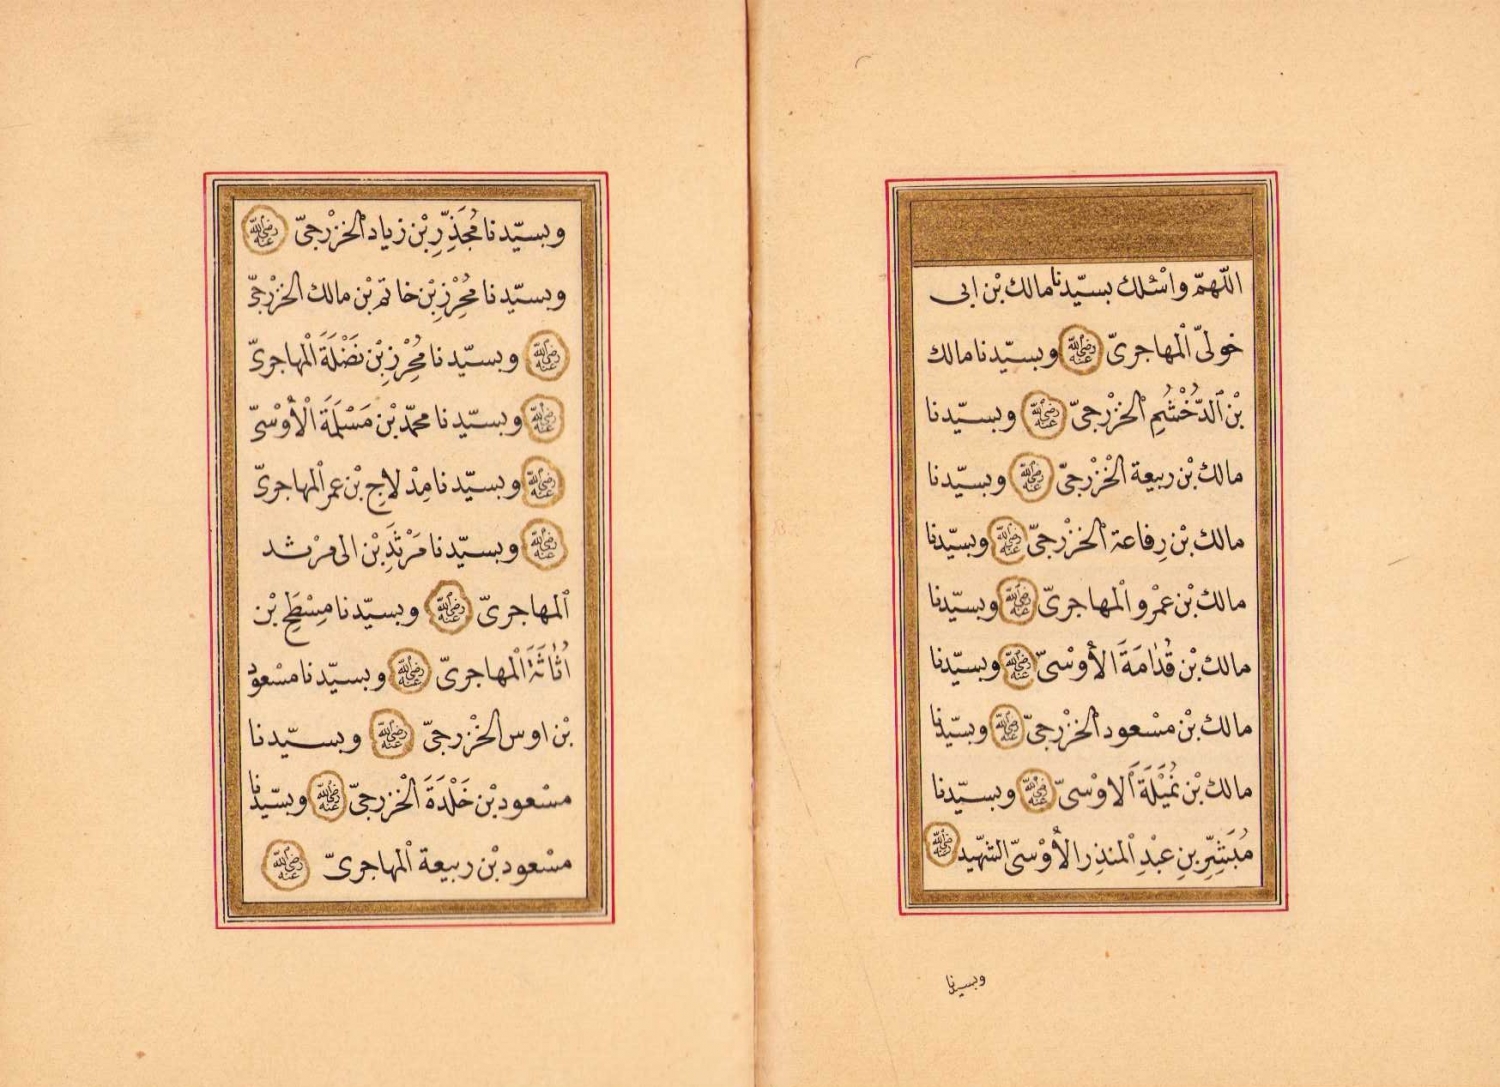 اللّهمّ واسْئلك بسيّدنا مالك بْن ابى
خولىّ الْمهاجرىّ رضى الله عنه وبسيّدنا مالك
بْن الدّخْشُمِ الْخزْرجىّ رضى الله عنه وبسيّدنا
مالك بْن ربيعة الْخزْرجىّ رضى الله عنه وبسيّدنا
مالك بْن رِفاعة الْخزْرجىّ رضى الله عنه وبسيّدنا
مالك بْن عمْرو الْمهاجرىّ رضى الله عنه وبسيّدنا
مالك بْن قُدامَةَ الأوْسىّ رضى الله عنه وبسيّدنا
مالك بْن مسْعود الْخزْرجىّ رضى الله عنه وبسيّدنا
مالك بْن نُمَيْلَةَ الاوْسىّ رضى الله عنه وبسيّدنا
مُبَشِّرِ بنِ عبْدِ الْمنذِر الأَوْسىّ الشّهيد رضى الله عنه
وبسيدنا
وبسيّدنا مُجَذِّرِ بْن زياد الْخزْرجىّ رضى الله عنه
وبسيّدنا مُحْرِزِ بْن خاتم بْن مالك الخزْرجىّ
رضى الله عنه وبسيّدنا مُحْرِزِ بْن نَضْلَةَ الْمهاجرىّ
رضى الله عنه وبسيّدنا محمّد بْن مَسْلَمَةَ الْأَوْسىّ
رضى الله عنه وبسيّدنا مِدْلاجِ بْن عمر الْمهاجرىّ
رضى الله عنه وبسيّدنا مَرْثَدِ بْن ابى مرْثد
الْمهاجرىّ رضى الله عنه وبسيّدنا مِسْطَحِ بْن
اُثَاثَةَ الْمهاجرىّ رضى الله عنه وبسيّدنا مسْعود
بْن اوس الْخزْرجىّ رضى الله عنه وبسيّدنا
مسْعود بْن خَلْدَةَ الْخزْرجىّ رضى الله عنه وبسيّدنا
مسْعود بْن ربيعة الْمهاجرىّ رضى الله عنه